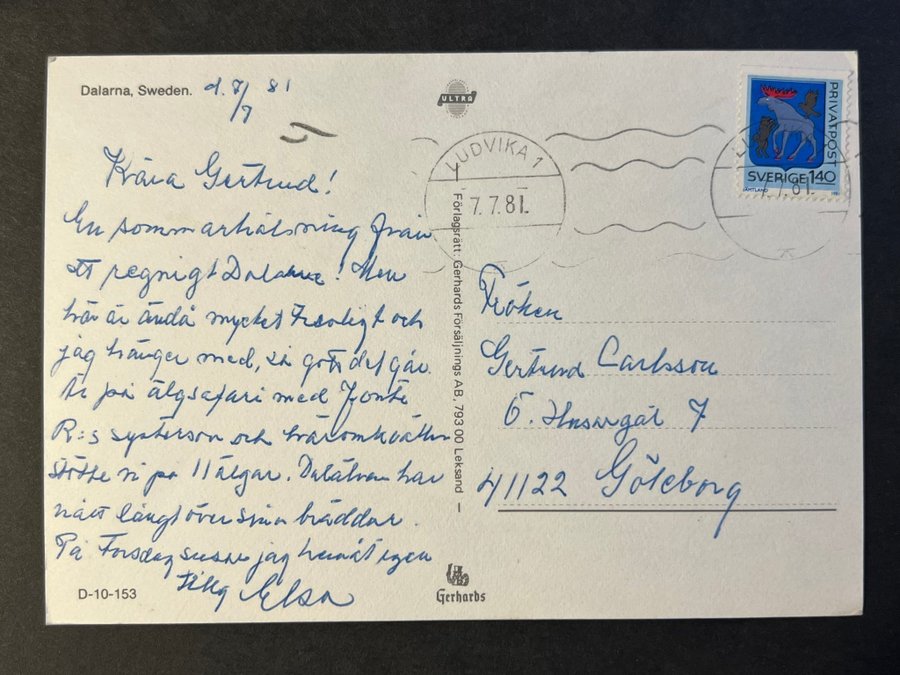 Dalarna, Sweden. d. 7/7 81
ULTRA
Kära Gertrud!
En sommarhälsning från
ett regnigt Dalarne! Men
här är ändå mycket trevligt och
jag hänger med, så gott det går.
Är på älgsafari med
R:s systerson och häromkvällen
stötte vi på 11 älgar. Dalälven har
nått långt över sina bräddar.
På Torsdag susar jag hemåt igen
Elsa
D-10-153
LUDVIKA 1
7.7.81
Förlagsrätt: Gerhards Försäljnings AB, 793 00 Leksand
Gerhards
PRIVATPOST
SVERIGE 140
JÄMTLAND
Fröken
Gertrud Carlsson
Ö. Husargat 7
41122 Göteborg